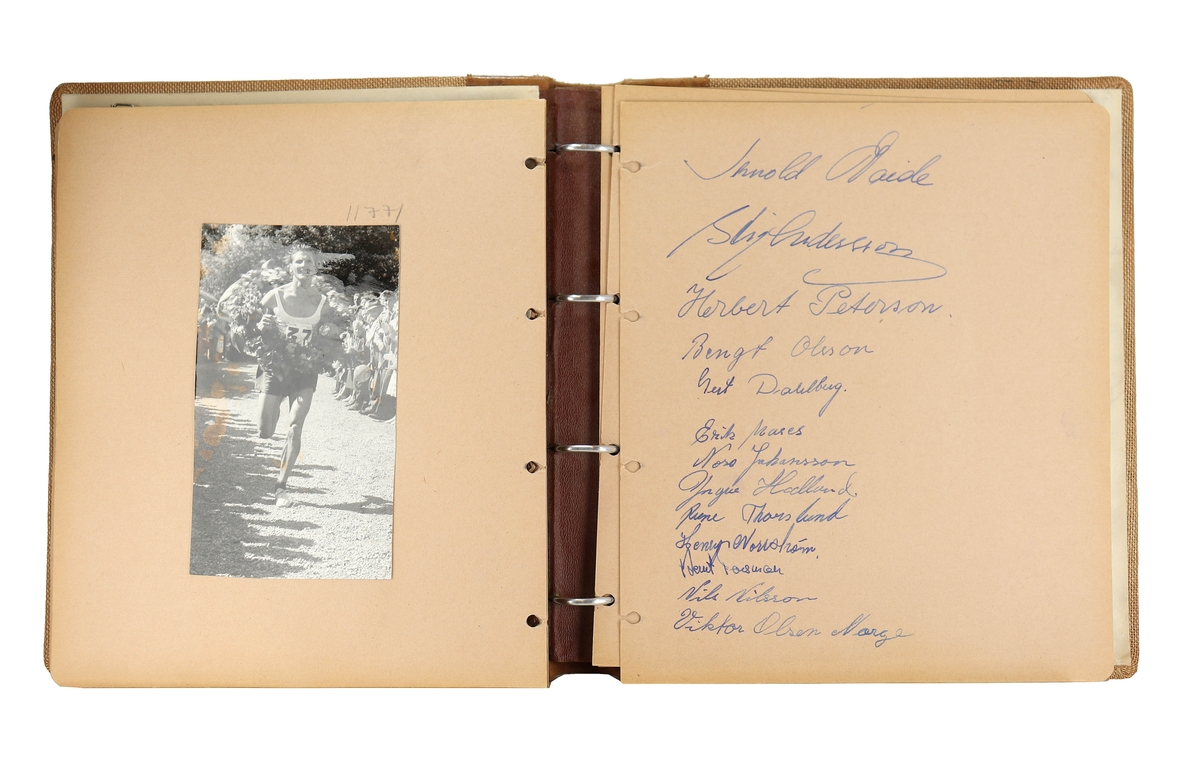 1177
Arnold Vaide
Stig Andersson
Herbert Peterson.
Bengt Olsson
Gert Dahlberg.
Erik
Johansson
Yngve Hedlund.
Rune Thorslund
Henry Norrström.
Nils Nilsson
Viktor Olsen Norge